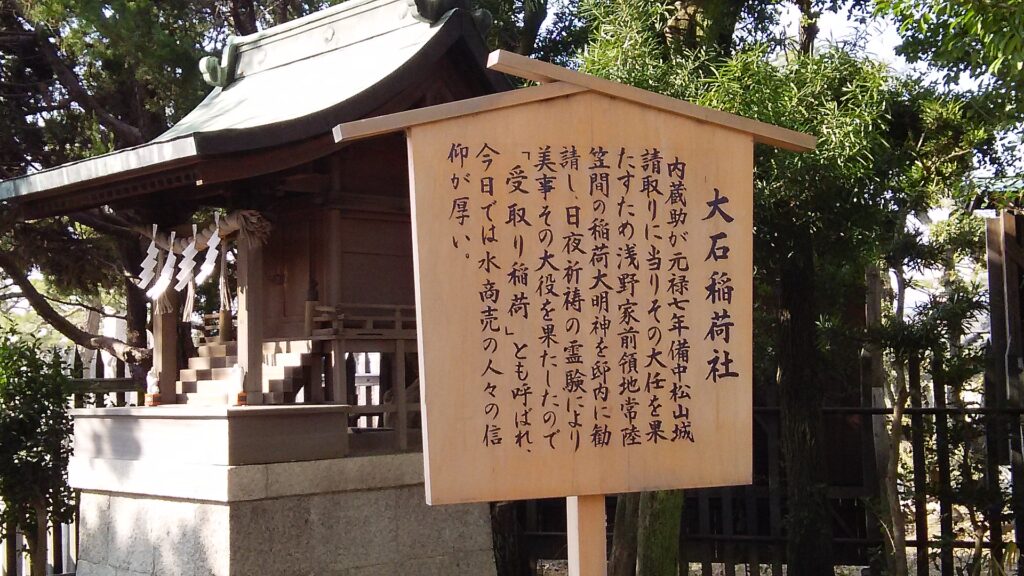 大石稲荷社
内蔵助が元禄七年備中松山城
請取りに当りその大任を果
たすため浅野家前領地常陸
笠間の稲荷大明神を邸内に勧
請し、日夜祈祷の霊験により
美事その大役を果たしたので
「受取り稲荷」とも呼ばれ、
今日では水商売の人々の信
仰が厚い。